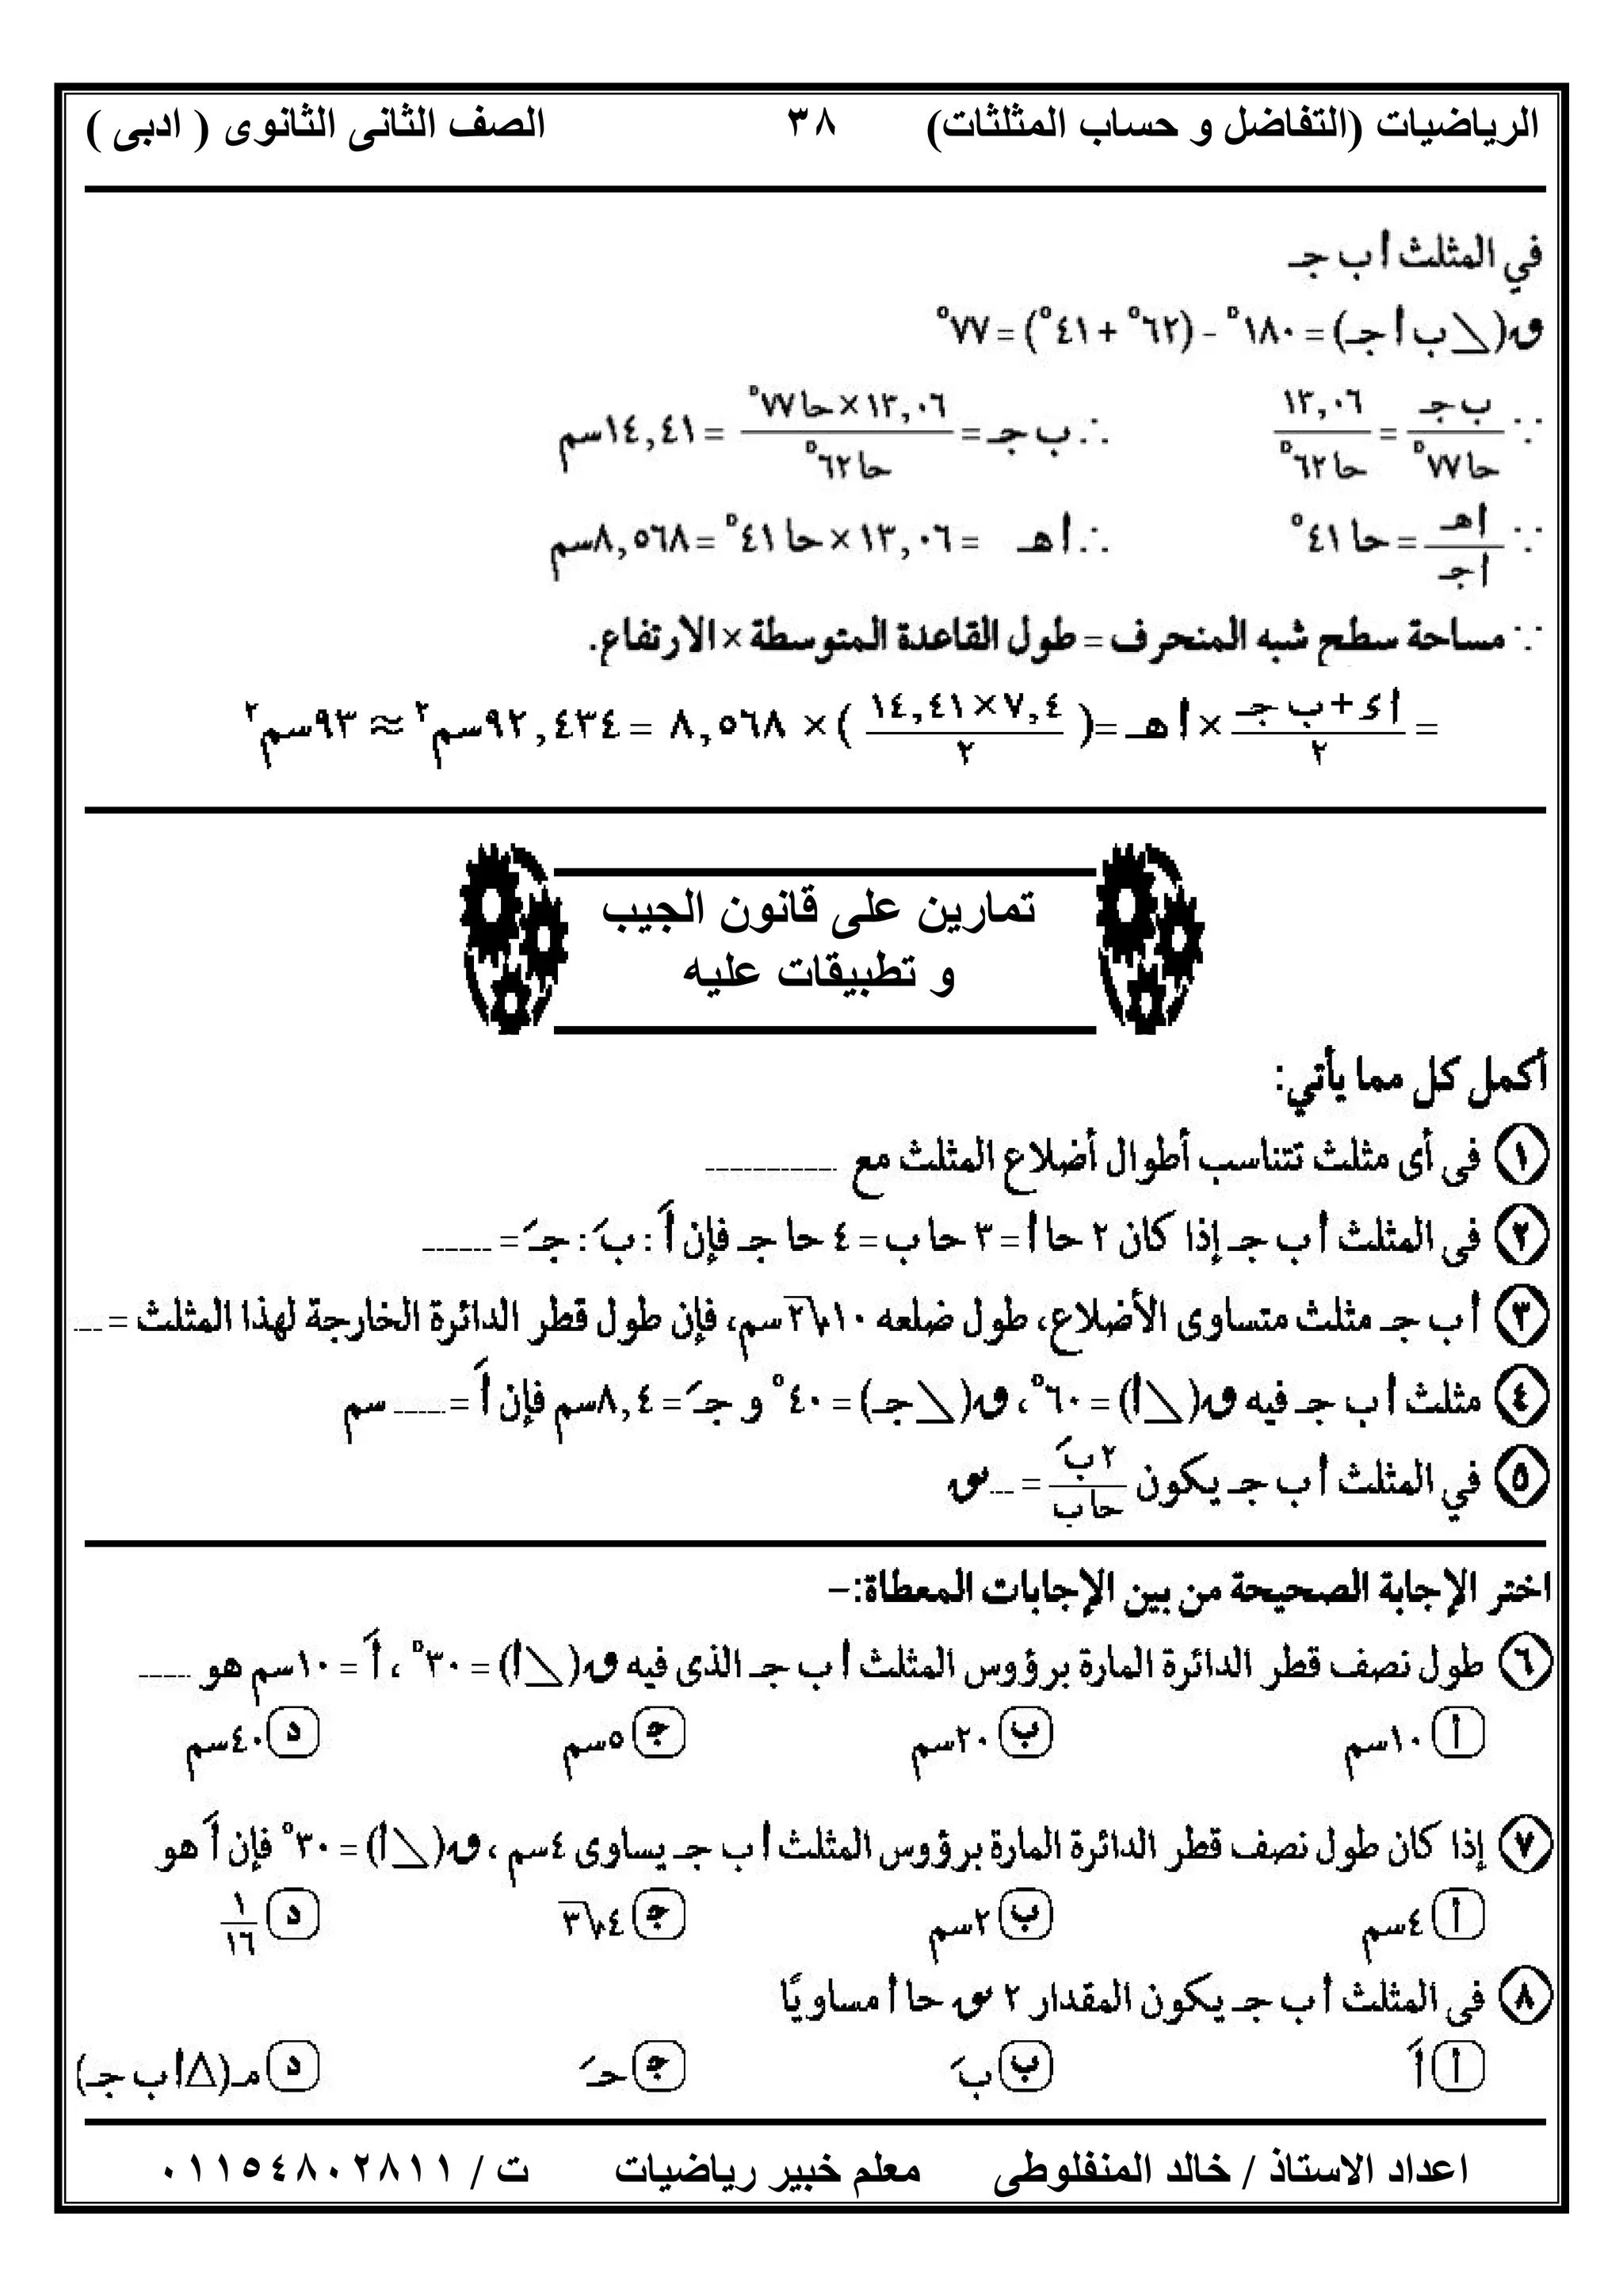 الرياضيات (التفاضل و حساب المثلثات) ٣٨ الصف الثانى الثانوى ( ادبى )
في المثلث أ ب جـ
ق(∠ب أ جـ) = ١٨٠° - (٦٢° + ٤١°) = ٧٧°
∵ ب جـ / حا ٧٧° = ١٣,٠٦ / حا ٦٢° ∴ ب جـ = ١٣,٠٦ × حا ٧٧° / حا ٦٢° = ١٤,٤١سم
∵ أهـ / أجـ = حا ٤١° ∴ أهـ = ١٣,٠٦ × حا ٤١° = ٨,٥٦٨سم
∵ مساحة سطح شبه المنحرف = طول القاعدة المتوسطة × الارتفاع.
= أ ى + ب جـ / ٢ × أ هـ = ( ٧,٤ × ١٤,٤١ / ٢ ) × ٨,٥٦٨ = ٩٢,٤٣٤سم٢ ≈ ٩٣سم٢
تمارين على قانون الجيب
و تطبيقات عليه
أكمل كل مما يأتي:
١ فى أى مثلث تتناسب أطوال أضلاع المثلث مع ...........
٢ فى المثلث أ ب جـ إذا كان ٢ حا أ = ٣ حا ب = ٤ حا جـ فإن أَ : بَ : جـَ = .......
٣ أ ب جـ مثلث متساوى الأضلاع، طول ضلعه ١٠√٣ سم، فإن طول قطر الدائرة الخارجة لهذا المثلث = ...
٤ مثلث أ ب جـ فيه ق(∠أ) = ٦٠°، ق(∠جـ) = ٤٠° و جـَ = ٨,٤سم فإن أَ = ...... سم
٥ في المثلث أ ب جـ يكون ٢ بَ / حا ب = ... نق
اختر الإجابة الصحيحة من بين الإجابات المعطاة:-
٦ طول نصف قطر الدائرة المارة برؤوس المثلث أ ب جـ الذى فيه ق(∠أ) = ٣٠° ، أَ = ١٠سم هو ......
أ ١٠سم ب ٢٠سم ج ٥سم د ٤٠سم
٧ إذا كان طول نصف قطر الدائرة المارة برؤوس المثلث أ ب جـ يساوى ٤سم ، ق(∠أ) = ٣٠° فإن أَ هو
أ ٤سم ب ٢سم ج ٤√٣ د ١/١٦
٨ فى المثلث أ ب جـ يكون المقدار ٢ نق حا أ مساويًا
أ أَ ب بَ ج حـَ د مـ(△أ ب جـ)
اعداد الاستاذ / خالد المنفلوطى معلم خبير رياضيات ت / ٠١١٥٤٨٠٢٨١١